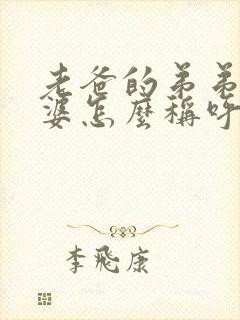 老爸的弟弟
婆怎麼稱呼
李飛康